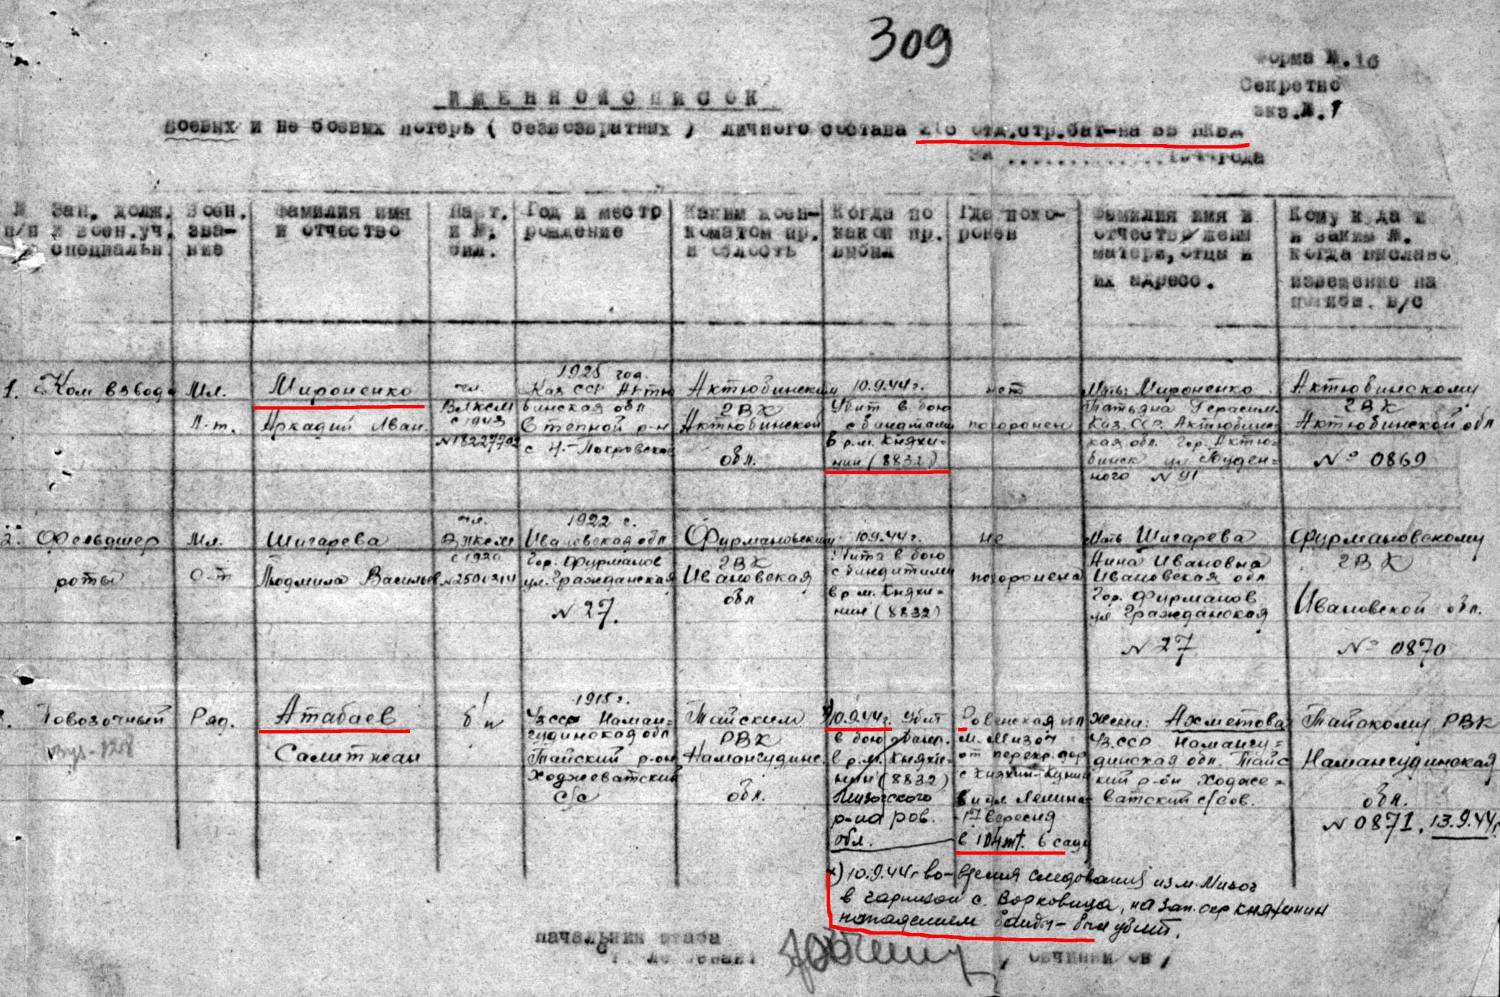 309
Форма №.16
Секретно
экз.№.1
ИМЕННОЙ СПИСОК
боевых и не боевых потерь ( безвозвратных ) личного состава отд.стр.бат-на ВВ НКВД
за ............... 1944 года
№ п/п
Зан. долж. и воен.уч. специальн.
Воен. зва-ние
Фамилия имя и отчество
Парт. и №. бил.
Год и место рождение
Каким воен-коматом пр. и область
Когда по какой пр. выбыл
Где похо-ронен
Фамилия имя и отчество жены матери, отцы и их адресс.
Кому куда и и заким №. когда выслано извещение на
1. Ком взвода
Мл.
Л-т.
Мироненко
Аркадий Иван.
чл.
ВЛКСМ
с 1943
1925 год.
Каз ССР Актю
бинская обл
Степной р-н
с Н.-Покровское
Актюбинским
ГВК
Актюбинской
обл.
10.9.44г.
Убит в бою
с бандитами
в р.м. Княхи-
нин (8832)
нет
похоронен
Мать: Мироненко
Татьяна Герасим.
Каз.ССР. Актюбинс-
кая обл. гор. Актю-
бинск ул Буден-
ного N 91
Актюбинскому
ГВК
Актюбинской обл
№ 0869
2. Фельдшер
роты
Мл.
с-т
Шигарева
Людмила Василье
чл.
ВЛКСМ
1922 г.
Ивановская обл
Гор. Фурманов
ул. Гражданская
N 27.
Фурмановским
ГВК
Ивановская
обл
10.9.44г.
Убита в бою
с бандитами
в р.м. Княхи-
нин (8832)
не
похоронена
Мать Шигарева
Нина Ивановна
Ивановская обл
Гор. Фурманов
ул Гражданская
N 27
Фурмановскому
ГВК
Ивановской обл.
№ 0870
Повозочный
Ряд.
Атабаев
Салитжан
б/п
1915г.
УзССР Наман-
гудинская обл
Тайский р-он
Ходжеватский
с/с
Тайским
РВК
Намангудинс.
обл.
*)10.9.44г. Убит
в бою
в р.м. Княхи-
нин (8832)
Мизочского
р-на ров.
обл.
Ровенская обл
м. Мизоч
от перекр. дор
с Княхин-
и ул Ленина-
17 вересня
в 104 mt. в саду
Жена: Ахметова
Уз.ССР Намангу-
динская обл. Тайс
кий р-он Ходже-
ватский с/сов.
Тайскому РВК
Намангудинская
обл.
N 0871. 13.9.44г.
*) 10.9.44г во-время следования из м. Мизоч
в гарнизон с. Борковица, на зап. окр Княхинин
нападением банды - был убит.
начальник штаба